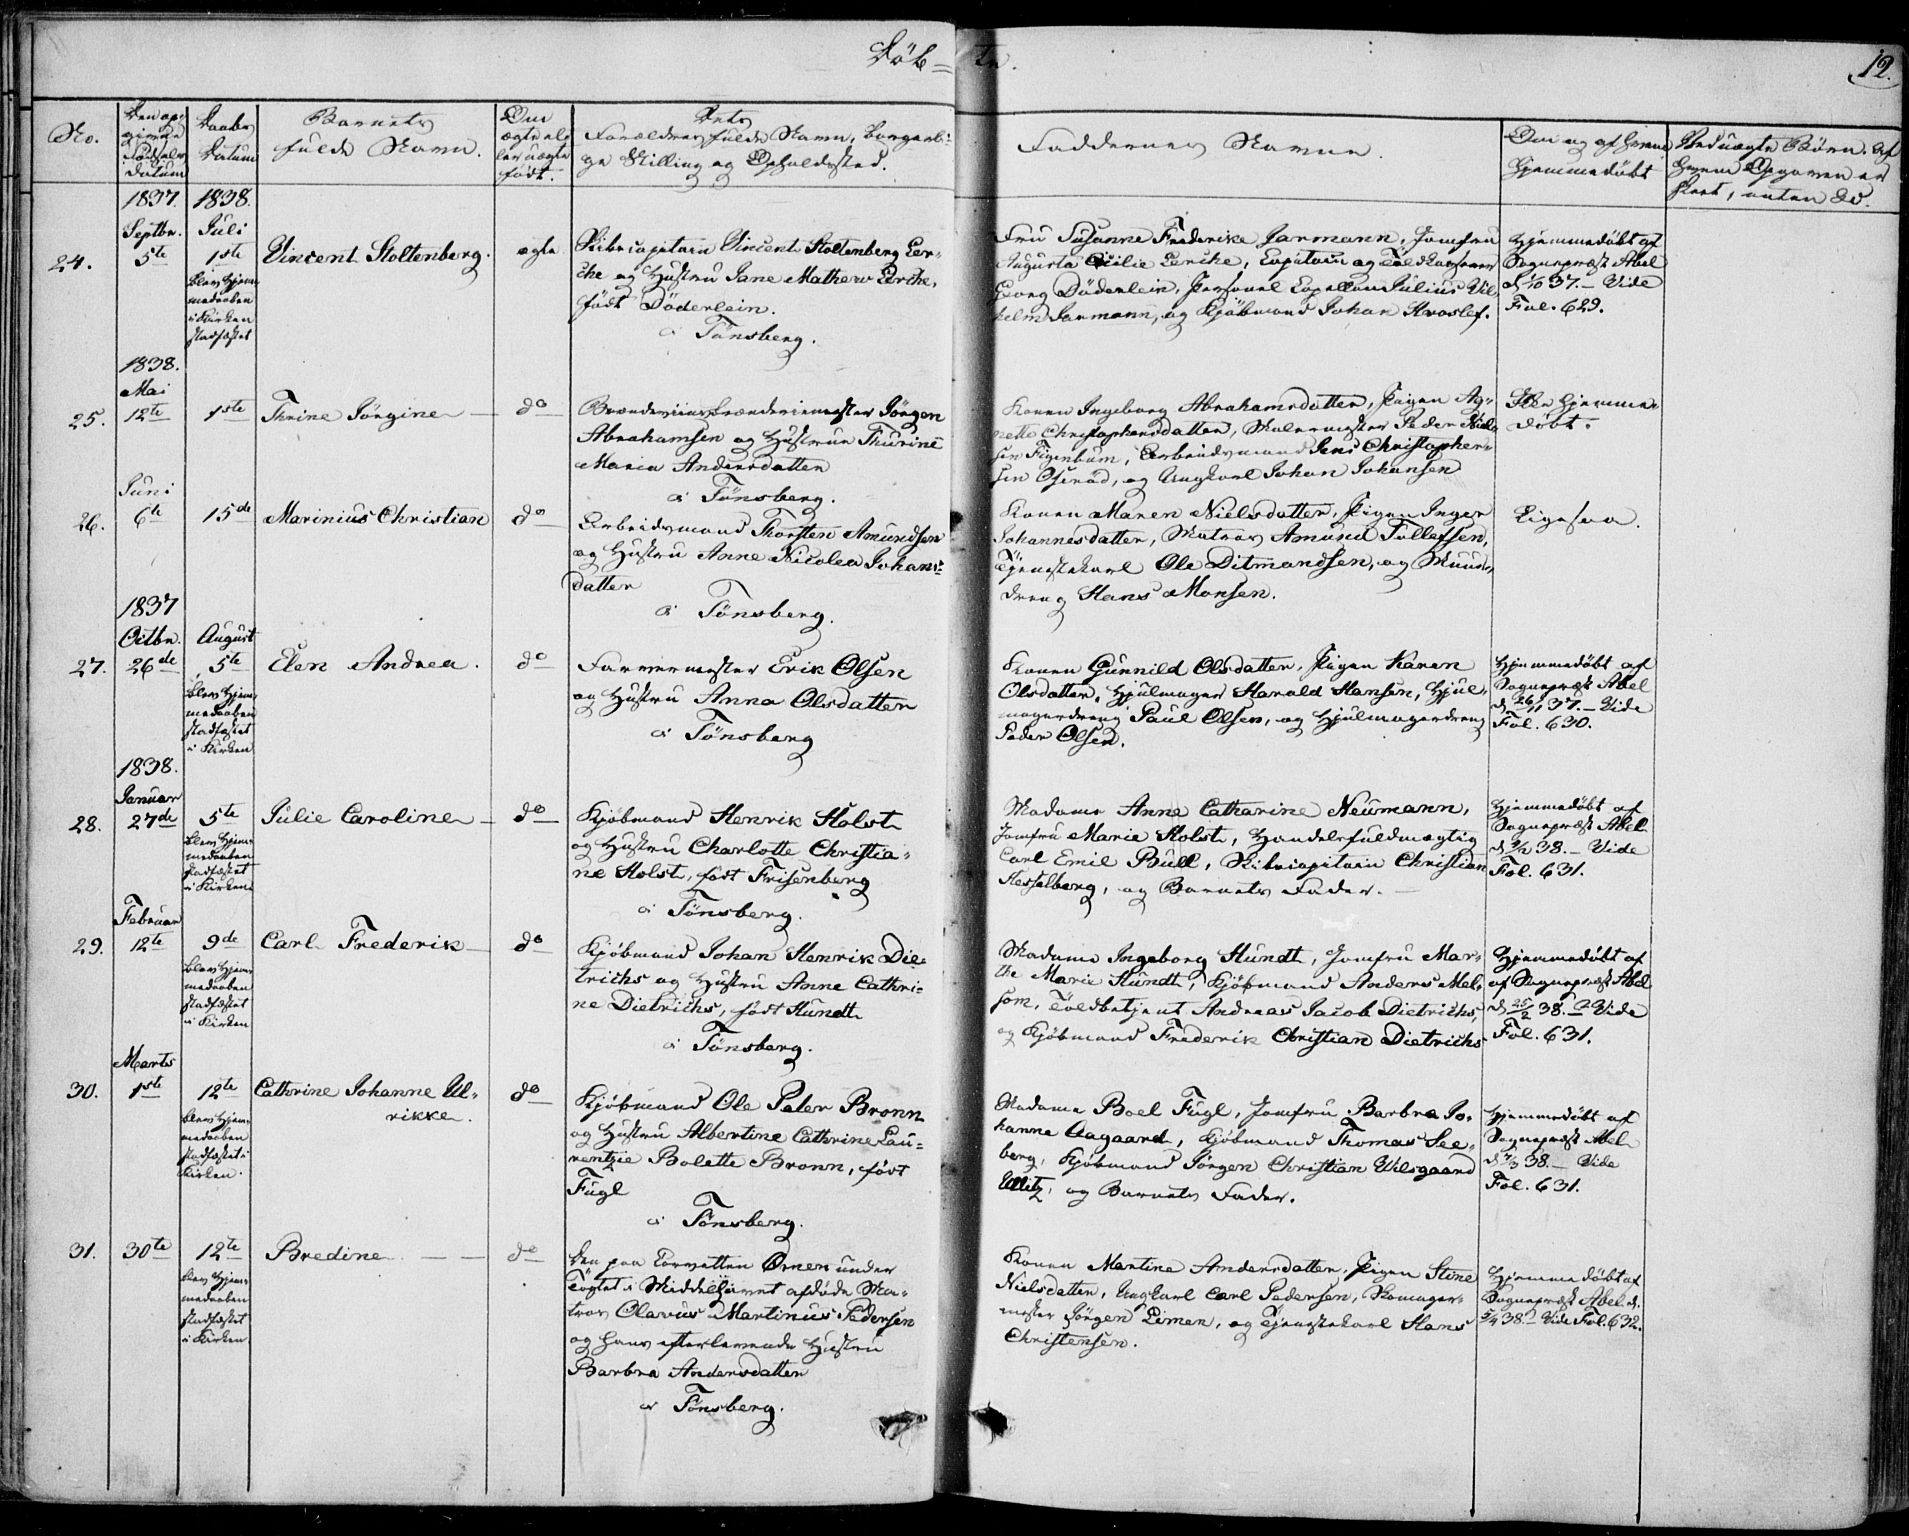 Døb=
te.
12.
No.
Den op-
givne
Fødsels
Datum
Daabs
Datum
Barnets
fulde Navn.
Om
ægte el-
ler uægte
født.
Dets
Forældres fulde Navn, borgerli-
ge Stilling og Opholdssted.
Faddernes Navne.
Om og af hvem
Hjemmedøbt
Ved uægte Børn, af
hvem Opgaven er
skeet, uden Ed.
1837. 1838.
Septbr. Juli
24. 5te 1ste Vincent Stoltenberg. ægte
blev Hjem-
medaaben
i Kirken
stadfæstet
Skibscapitain Vincent Stoltenberg Ler-
che og Hustru Jane Mathew Lerche,
født Döderlein.
i Tönsberg.
Fru Susanne Frederike Jarmann, Jomfru
Augusta Cecilie Lerche, Capitain og Toldkasserer
Georg Döderlein, Personel Capellan Julius Vil-
helm Jarmann, og Kjøbmand Johan Kroslef.
Hjemmedøbt af
Sognepræst Abel
37. – Vide
Fol. 629.
1838.
Mai
25. 12te 1ste Thrine Jörgine – do
Brænderimester Jörgen
Abrahamsen og Hustrue Thurine
Maria Andersdatter
i Tönsberg.
Konen Ingeborg Abrahamsdatter, Pigen Ag-
nette Christophersdatter, Malermester Peder Niel-
sen Figenbaum, Arbeidsmand Jens Christopher-
sen Oserød, og Ungkarl Johan Johansen
Ikke Hjemme-
døbt.
Juni
26. 6te 15de Marinius Christian do
Arbeidsmand Thorsten Amundsen
og Hustru Anne Nicolea Johans-
datter
i Tönsberg.
Konen Maren Nielsdatter, Pigen Inger
Johannesdatter, Matros Amund Tollefsen,
Tjenestekarl Ole Ditmandsen, og Muur-
dreng Hans Monsen.
Ligesaa.
1837
Octbr. August
27. 26de 5te Elen Andrea. do
blev Hjem-
medaaben
stadfæstet
i Kirken
Farvermester Erik Olsen
og Hustru Anna Olsdatter
i Tönsberg
Konen Gunnild Olsdatter, Pigen Karen
Olsdatter, Hjulmager Harald Hansen, Hjul-
magerdreng Paul Olsen, og Hjulmagerdreng
Peder Olsen.
Hjemmedøbt af
Sognepræst Abel
d 26/11 37. – Vide
Fol. 630.
1838.
Januar
28. 27de 5te Julie Caroline – do
blev Hjem-
medaaben
stadfæstet
i Kirken
Kjøbmand Henrik Holst
og Hustru Charlotte Christia-
ne Holst, født Frisenberg
i Tönsberg.
Madame Anne Catharine Neumann,
Jomfru Marie Holst, Handelsfuldmægtig
Carl Emil Bull, Skibscapitain Christian
Hesselberg, og Barnets Fader. –
Hjemmedøbt af
Sognepræst Abel
38. – Vide
Fol. 631.
Februar
29. 12te 9de Carl Frederik – do
blev Hjem-
medaaben
stadfæstet
i Kirken
Kjøbmand Johan Henrik Die-
trichs og Hustru Anne Cathri-
ne Dietrichs, født Hundt
i Tönsberg.
Madame Ingeborg Hundt, Jomfru Mar-
the Marie Hundt, Kjøbmand Anders Mel-
som, Toldbetjent Andreas Jacob Dietrichs,
og Kjøbmand Frederik Christian Dietrichs
Hjemmedøbt af
af Sognepræst Abel
d 25/2 38. – Vide
Fol. 631.
Marts
30. 1ste 12te Cathrine Johanne Ul-
rikke. do
blev Hjem-
medaaben
stadfæstet i
Kirken.
Kjøbmand Ole Peter Bronn
og Hustru Albertine Cathrine Lau-
rentzie Bolette Bronn, født
Fugl
i Tönsberg.
Madame Boel Fugl, Jomfru Barbra Jo-
hanne Aagaard, Kjøbmand Thomas See-
berg, Kjøbmand Jörgen Christian Vilsgaard
Ullitz, og Barnets Fader.
Hjemmedøbt af
Sognepræst Abel
38. – Vide
Fol. 631.
31. 30te 12te Bredine – – do
blev Hjem-
medaaben
stadfæstet
i Kirken
Den paa Corvetten Ørnen under
Togtet i Middelhavet afdøde Ma-
tros Olavus Martinus Pedersen
og hans efterlevende Hustru
Barbra Andersdatter
i Tönsberg.
Konen Martine Andersdatter, Pigen Stine
Nielsdatter, Ungkarl Carl Pedersen, Skomager-
mester Jörgen Limen, og Tjenestekarl Hans
Christensen.
Hjemmedøbt af
Sognepræst Abel d.
5/4 38 – Vide Fol. 632.